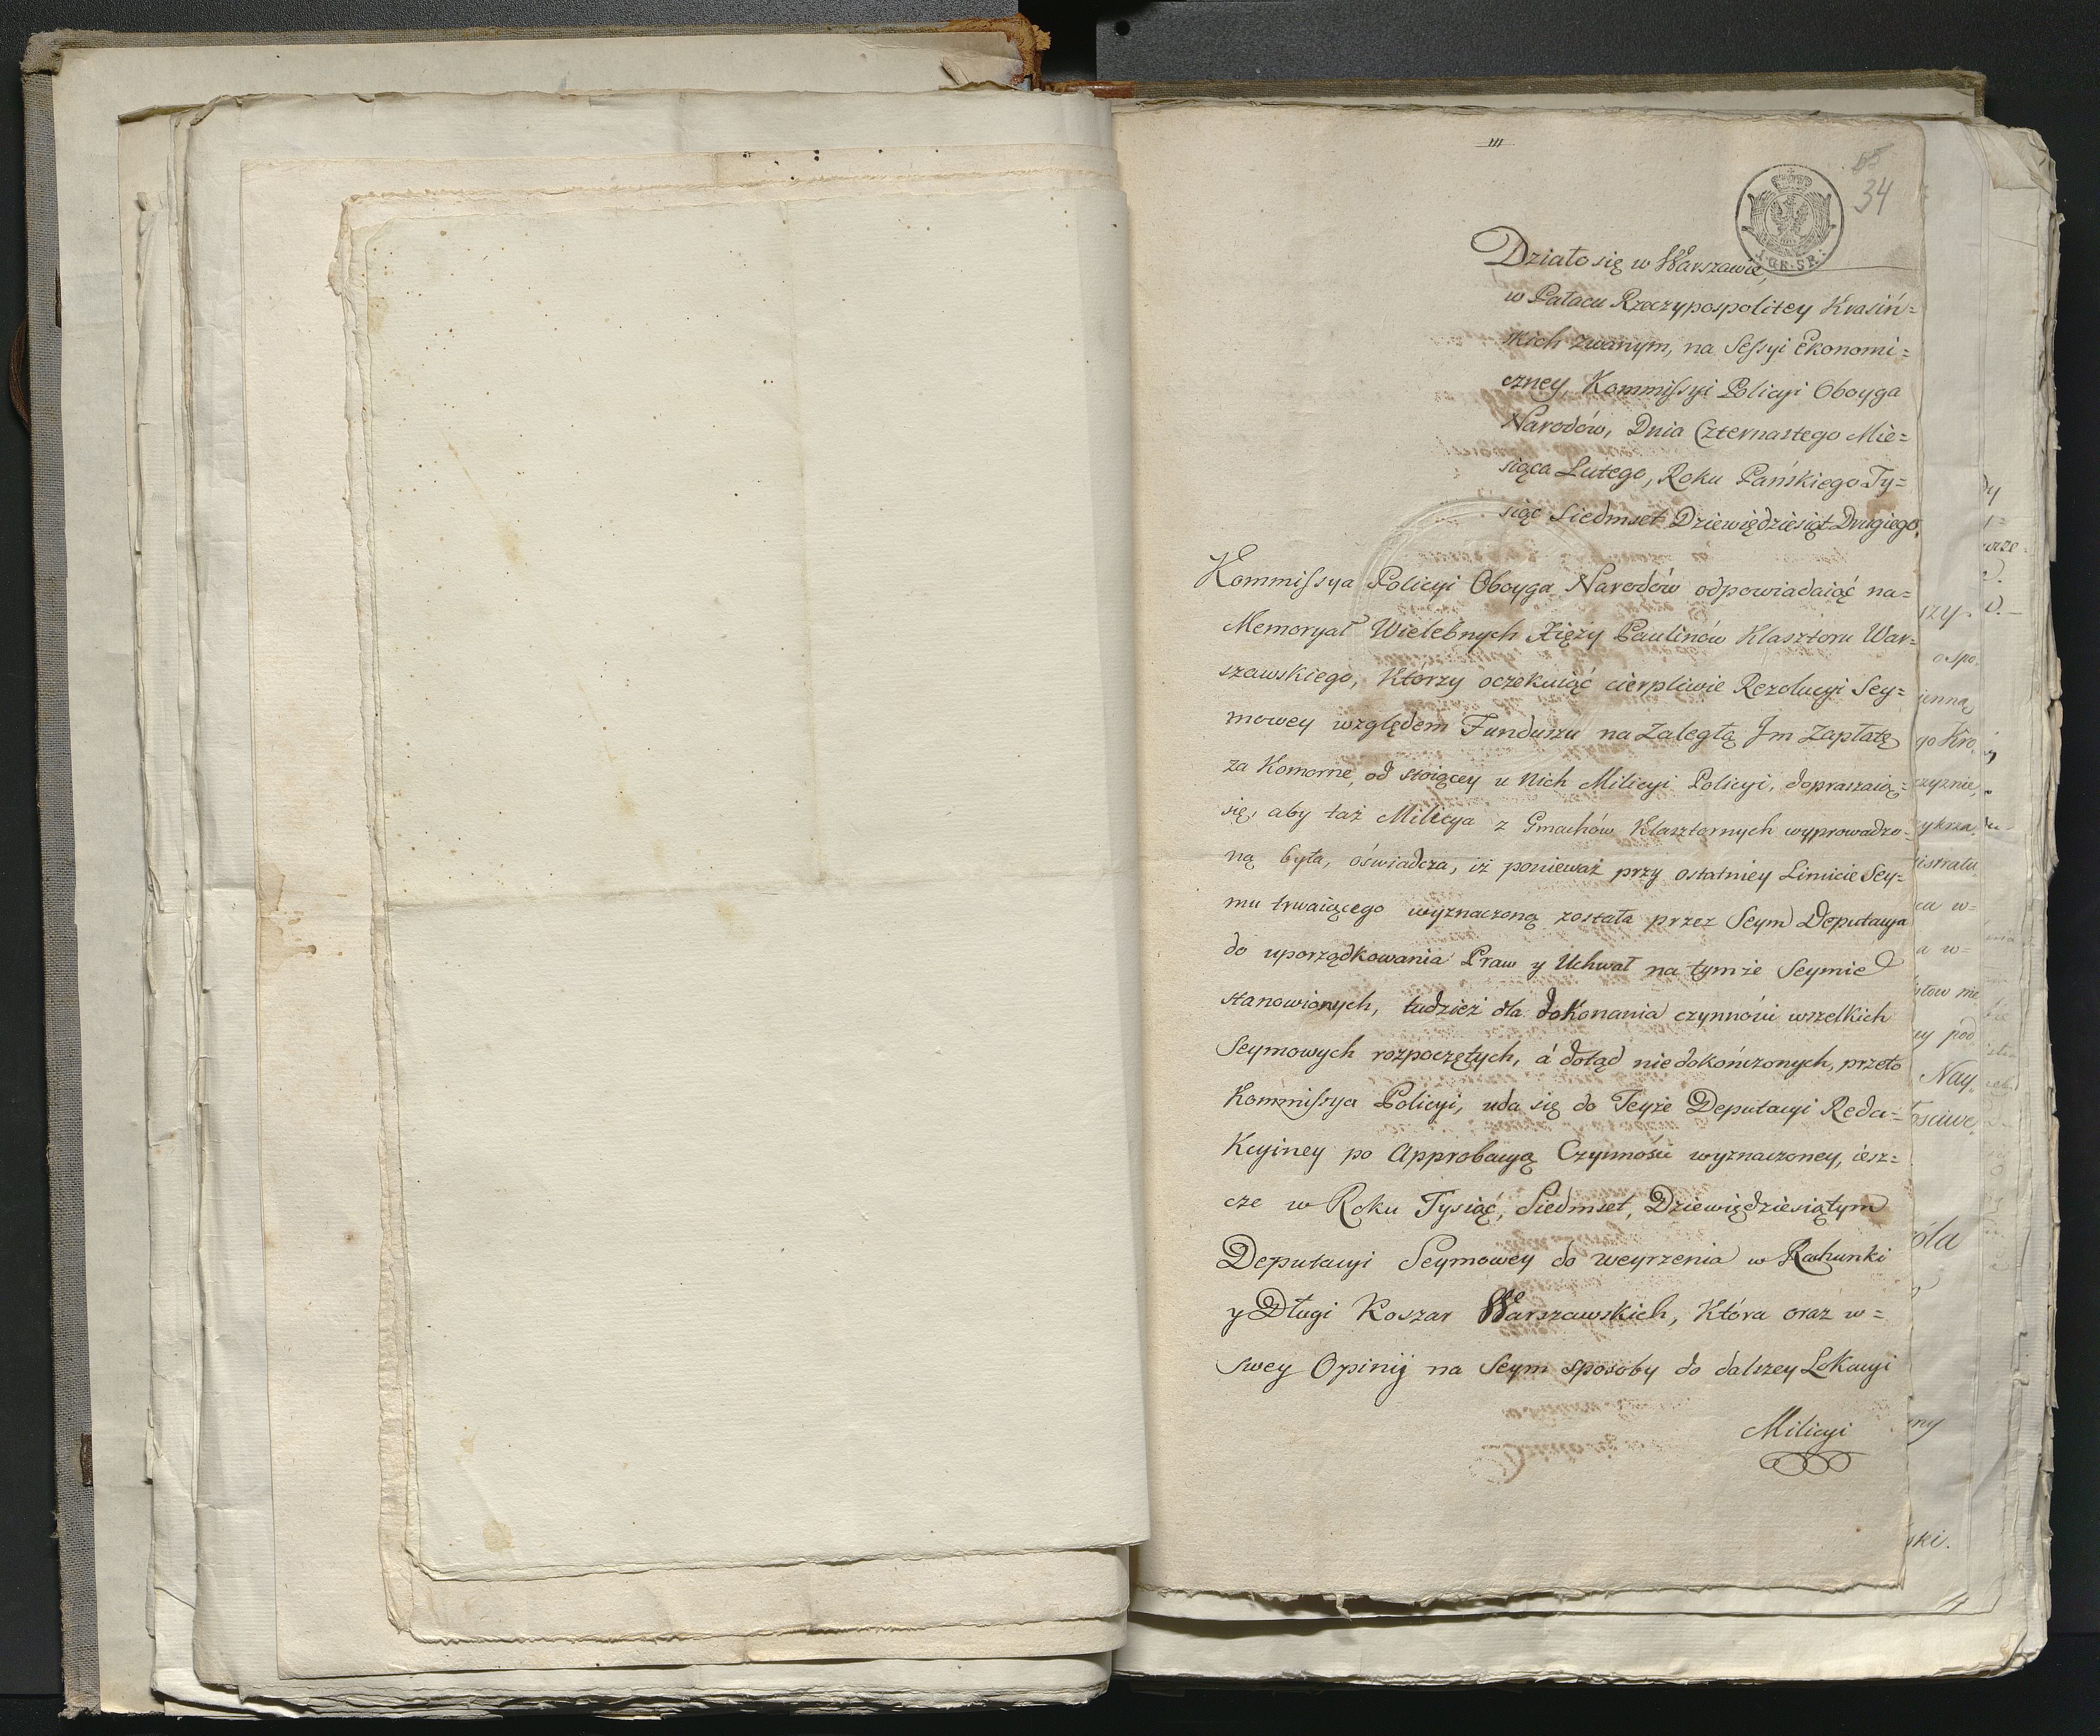 III
34
Działo się w Warszawie,
w Pałacu Rzeczypospolitey Krasiń=
skich zwanym, na Sessyi Ekonomi=
czney, Kommissyi Policyi Oboyga
Narodów, Dnia Czternastego Mie=
siąca Lutego, Roku Pańskiego Ty=
siąc Siedmset Dziewiędziesiąt Drugiego.
Kommissya Policyi Oboyga Narodów odpowiadaiąć na=
Memoryał Wielebnych Xięży Paulinów Klasztoru War=
szawskiego, Którzy oczekuiąć cierpliwie Rezolucyi Sey=
mowey względem Funduszu na Zaległą Im Zapłatę
za Komorne, od stoiącey u Nich Milicyi Policyi, dopraszaią=
się, aby taż Milicya z Gmachów Klasztornych wyprowadzo=
ną była, oświadcza, iż ponieważ przy ostatniey Limicie Sey=
mu trwaiącego wyznaczoną została przez Seym Deputacya
do uporządkowania Praw y Uchwał na tymże Seymie
stanowionych, tudzież dla dokonania czynności wszelkich
Seymowych rozpoczętych, á dotąd niedokończonych, przeto
Kommissya Policyi, uda się do Teyże Deputacyi Reda=
Kcyiney po Approbacyą Czynności wyznaczoney, iesz=
cze w Roku Tysiąć, Siedmset, Dziewiędziesiątym
Deputacyi Seymowey do weyrzenia w Rachunki
y Długi Koszar Warszawskich, Która oraz w=
swey Opinij na Seym sposoby do dalszey LoKacyi
Milicyi